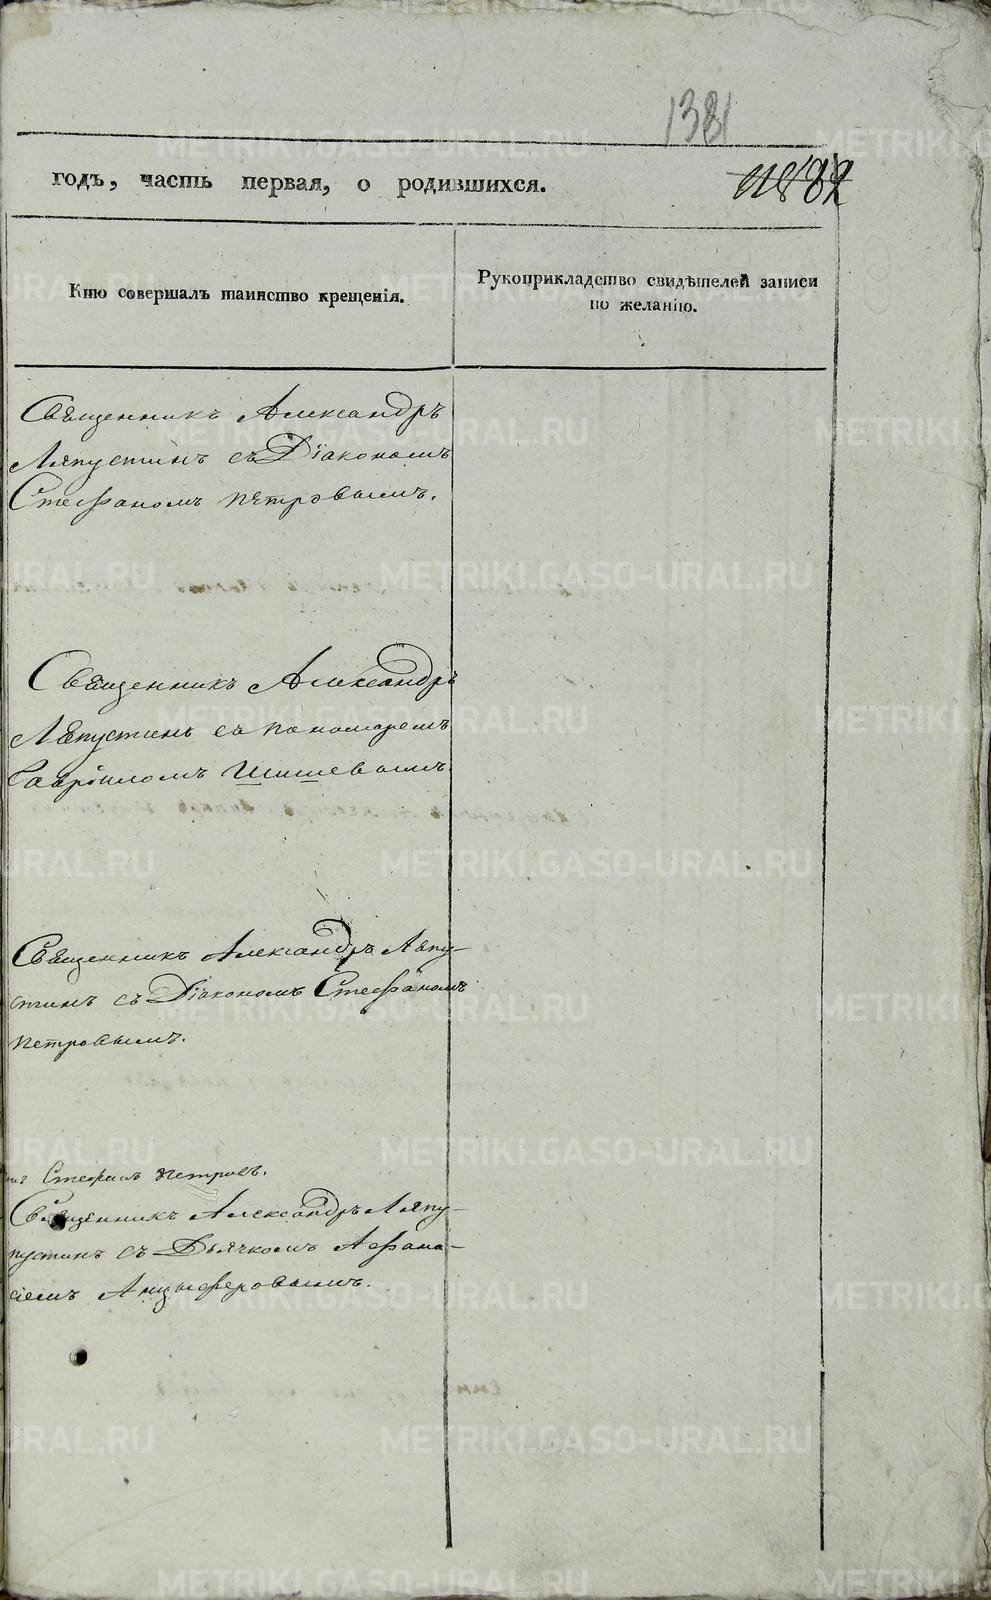 1381
годъ, часть первая, о родившихся.
Кто совершалъ таинство крещенія.
Рукоприкладство свидѣтелей записи
по желанію.
Священникъ Александръ
Ляпустинъ съ Діакономъ
Стефаномъ Петровымъ.
Священникъ Александръ
Ляпустинъ съ пономаремъ
Гавріиломъ Шишевымъ.
Священникъ Александръ Ляпу-
стинъ съ Діакономъ Стефаномъ
Петровымъ.
Стефанъ Петровъ.
Священникъ Александръ Ляпу-
пустинъ съ Дьячкомъ Афана-
сіемъ Анцыферовымъ.
METRIKI.GASO-URAL.RU